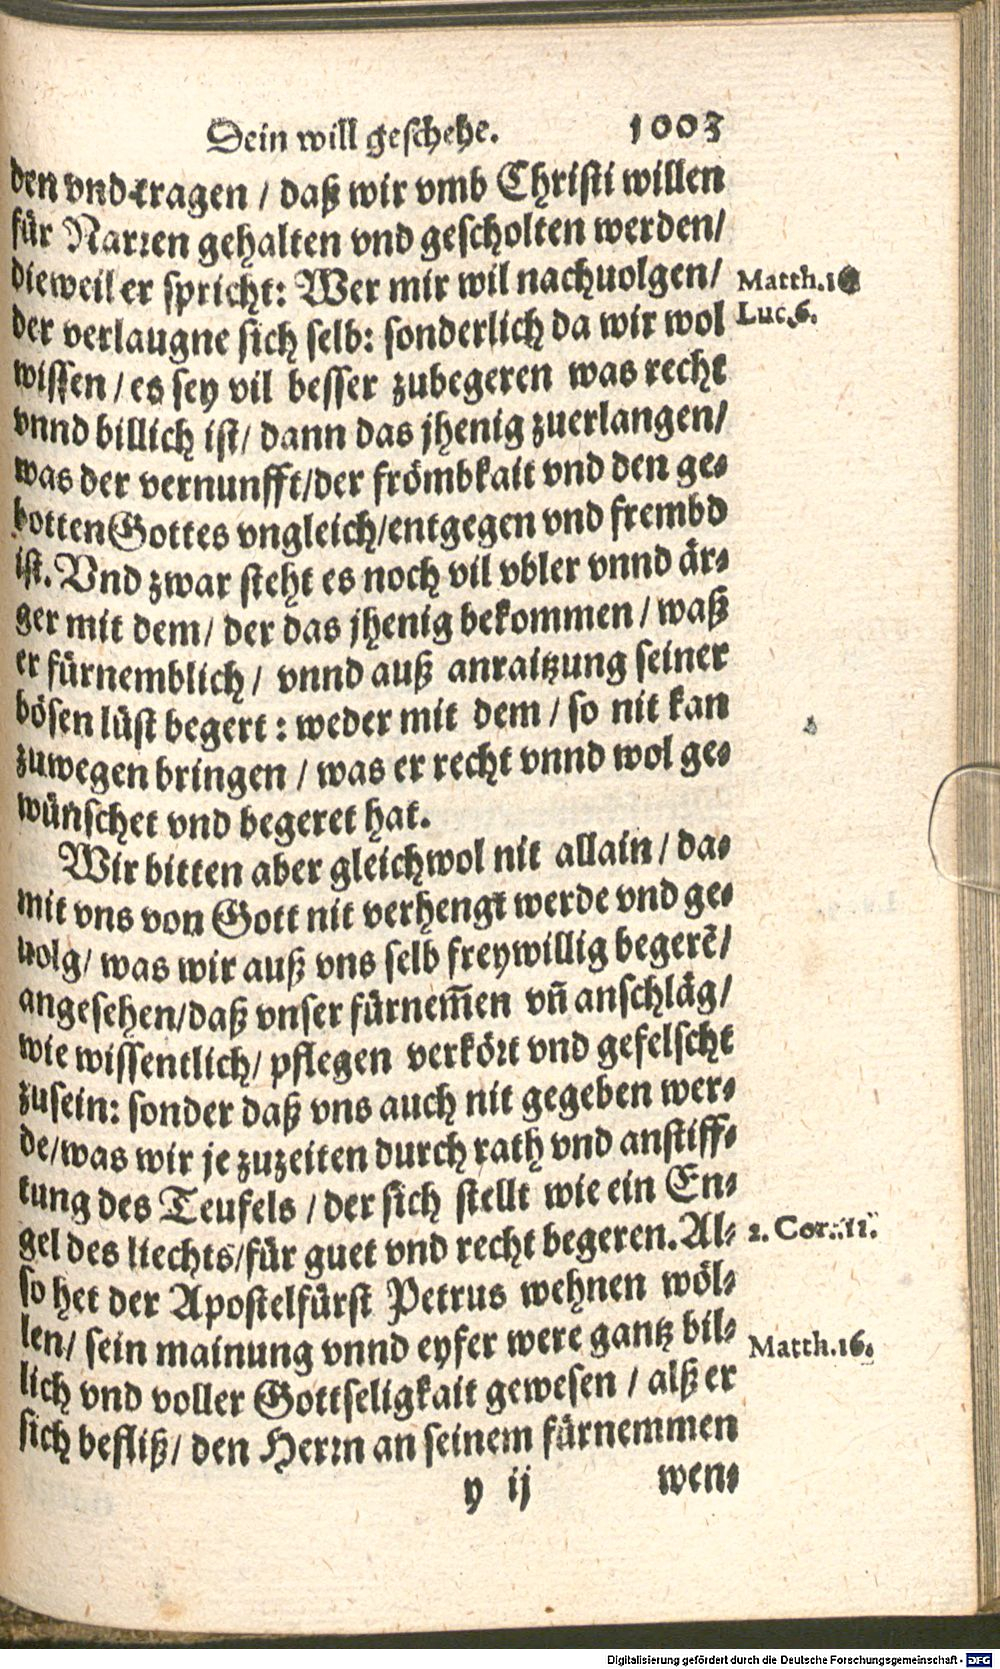 Dein will geschehe. 1003
den vnd tragen / daß wir vmb Christi willen
für Narren gehalten vnd gescholten werden/
dieweil er spricht: Wer mir wil nachuolgen/ Matth.16
der verlaugne sich selb: sonderlich da wir wol Luc.6.
wissen / es sey vil besser zubegeren was recht
vnnd billich ist/ dann das jhenig zuerlangen/
was der vernunfft/der frömbkait vnd den ge-
botten Gottes vngleich/entgegen vnd frembd
ist. Vnd zwar steht es noch vil vbler vnnd är-
ger mit dem/ der das jhenig bekommen / waß
er fürnemblich / vnnd auß anraitzung seiner
bösen lüst begert : weder mit dem / so nit kan
zuwegen bringen / was er recht vnnd wol ge-
wünschet vnd begeret hat.
Wir bitten aber gleichwol nit allain / da-
mit vns von Gott nit verhengt werde vnd ge-
uolg/ was wir auß vns selb freywillig begerẽ/
angesehen/daß vnser fürnem̃en vñ anschläg/
wie wissentlich/ pflegen verkört vnd gefelscht
zusein: sonder daß vns auch nit gegeben wer-
de/was wir je zuzeiten durch rath vnd anstiff-
tung des Teufels / der sich stellt wie ein En-
gel des liechts/für guet vnd recht begeren. Al- 2. Cor. 11.
so het der Apostelfürst Petrus wehnen wöl-
len/ sein mainung vnnd eyfer were gantz bil- Matth.16.
lich vnd voller Gottseligkait gewesen / alß er
sich befliß/ den Herrn an seinem fürnemmen
y ij wen-
Digitalisierung gefördert durch die Deutsche Forschungsgemeinschaft - DFG